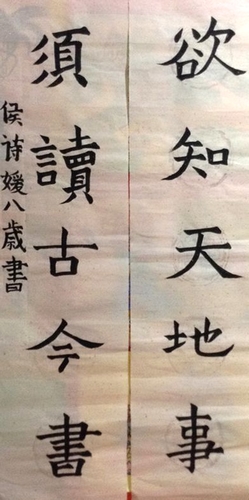 欲知天地事
須讀古今書
侯诗媛八歳書